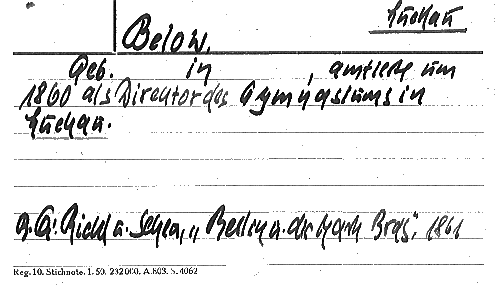 Luckau
Below,
Geb. in , amtierte um
1860 als Direktor des Gymnasiums in
Luckau.
a. a. Riehl u. Scheu, „Berlin u. die Mark Brdg", 1861
Reg. 10. Stichnote. 1. 50. 232 000. A.803. S. 4062